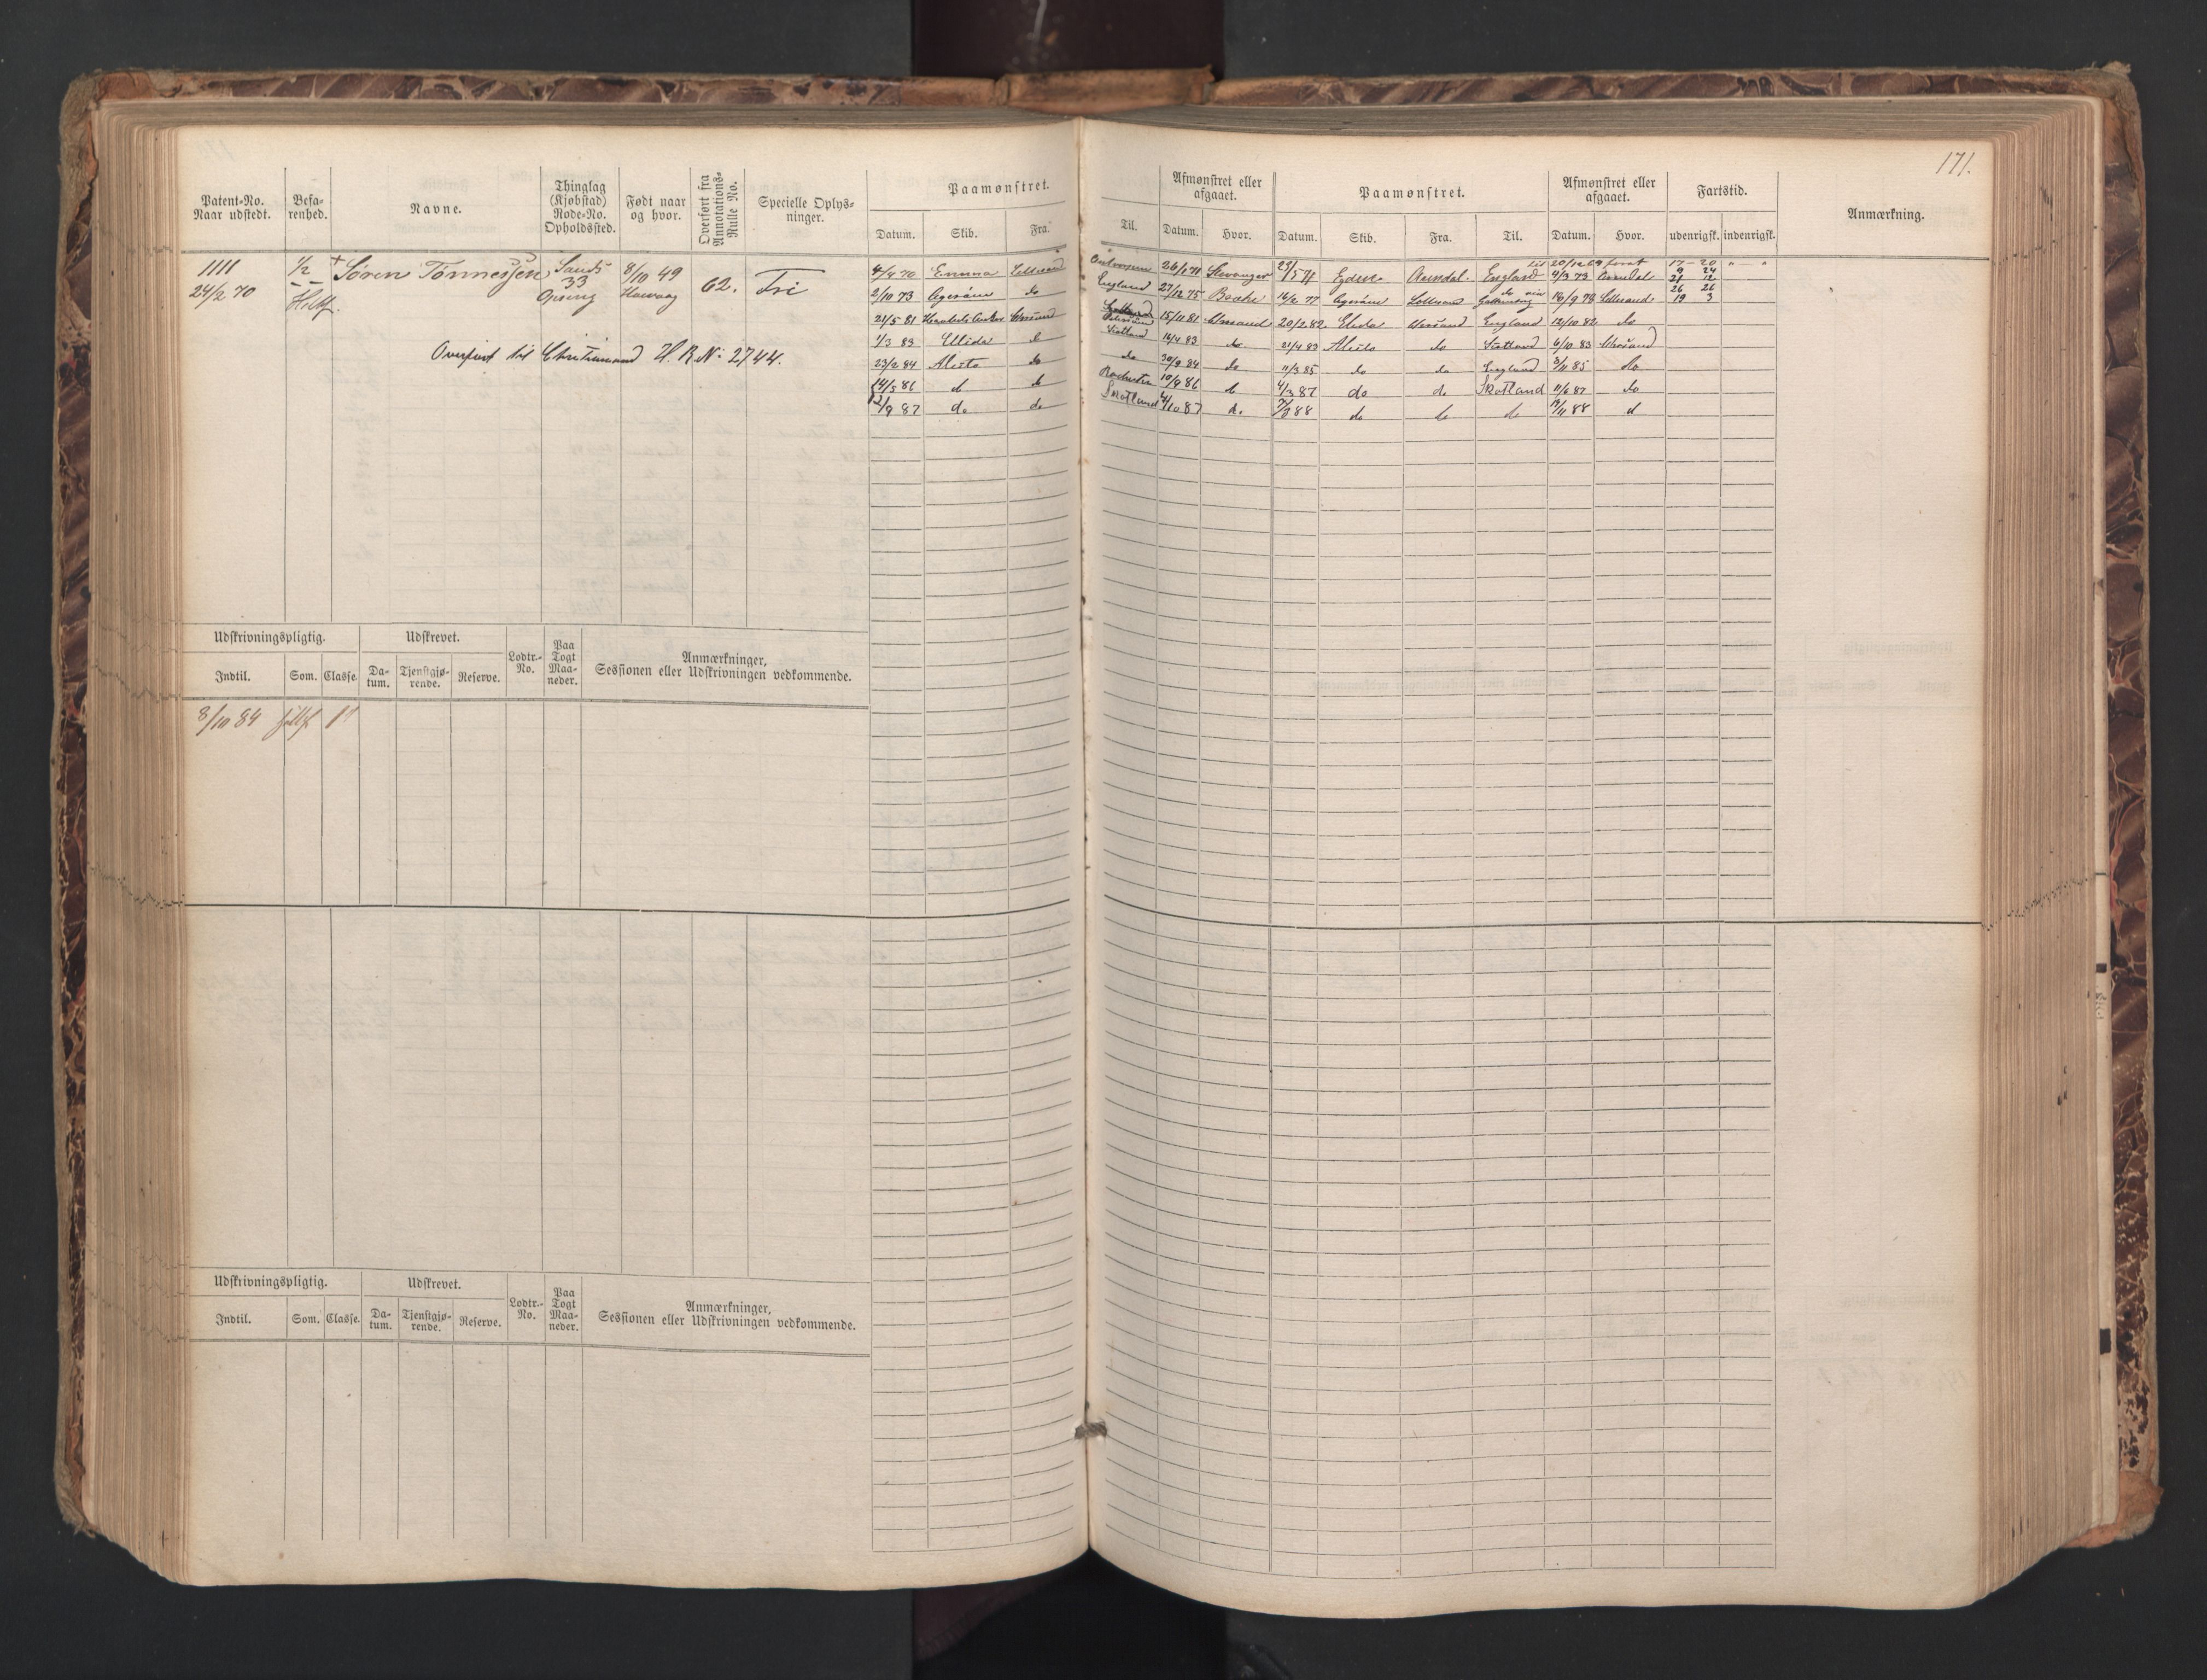 171.
Patent-No. Naar udstedt.
Befa-renhed.
Navne.
Thinglag (Kjøbstad) Rode-No. Opholdssted.
Født naar og hvor.
Overført fra Annotations-Rulle No.
Specielle Oplys-ninger.
Paamønstret.
Datum. Skib. Fra. Til.
Afmønstret eller afgaaet.
Datum. Hvor.
Paamønstret.
Datum. Skib. Fra. Til.
Afmønstret eller afgaaet.
Datum. Hvor.
Fartstid.
udenrigsk. indenrigsk.
Anmærkning.
1111 1/2 + Søren Tønnessen Sands 8/10 49 62. Fri
24/2 70 33 Høvaag
Overført til Christiansand H. R. No: 2744.
4/4 70 Emma Lillesand
2/10 73 do
21/5 81
1/3 83 Ellida do
23/2 84 Alisto do
14/5 86 do do
12/9 87 do do
26/1 71 Stavanger 23/5 71 Arendal England 4/3 73 Arendal
England 27/12 75 16/2 77 Lillesand
15/11 81 20/2 82 England 12/10 82 do
Skotland 14/4 83 do 21/4 83 Alisto do Skotland 6/10 83
do 30/9 84 do 11/3 85 do do England 3/11 85 do
10/9 86 do 4/3 87 do do Skotland 11/6 87 do
Skotland 4/10 87 do 7/3 88 do do do 19/11 88 do
17 - 20 " - "
9 24
21 12
26 26
19 3
Udskrivningspligtig.
Indtil. Som. Classe.
Udskrevet.
Da-tum. Tjenstgjø-rende. Reserve.
Lodtr.-No.
Paa Togt Maa-neder.
Anmærkninger, Sessionen eller Udskrivningen vedkommende.
8/10 84
Udskrivningspligtig.
Indtil. Som. Classe.
Udskrevet.
Da-tum. Tjenstgjø-rende. Reserve.
Lodtr.-No.
Paa Togt Maa-neder.
Anmærkninger, Sessionen eller Udskrivningen vedkommende.